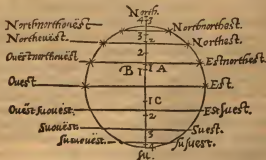 North.
Northnorthouëst. Northnortheſt.
Northouëst. Northeſt.
Ouëstnorthouëst. Eſtnortheſt.
B A
Oueſt. Eſt.
C
Ouëst ſuouëst. Eſtſueſt.
Suouëst. Sueſt.
Suſuouëst. Suſueſt.
Su.
4 3
3 2
2
1
1
2
3
4